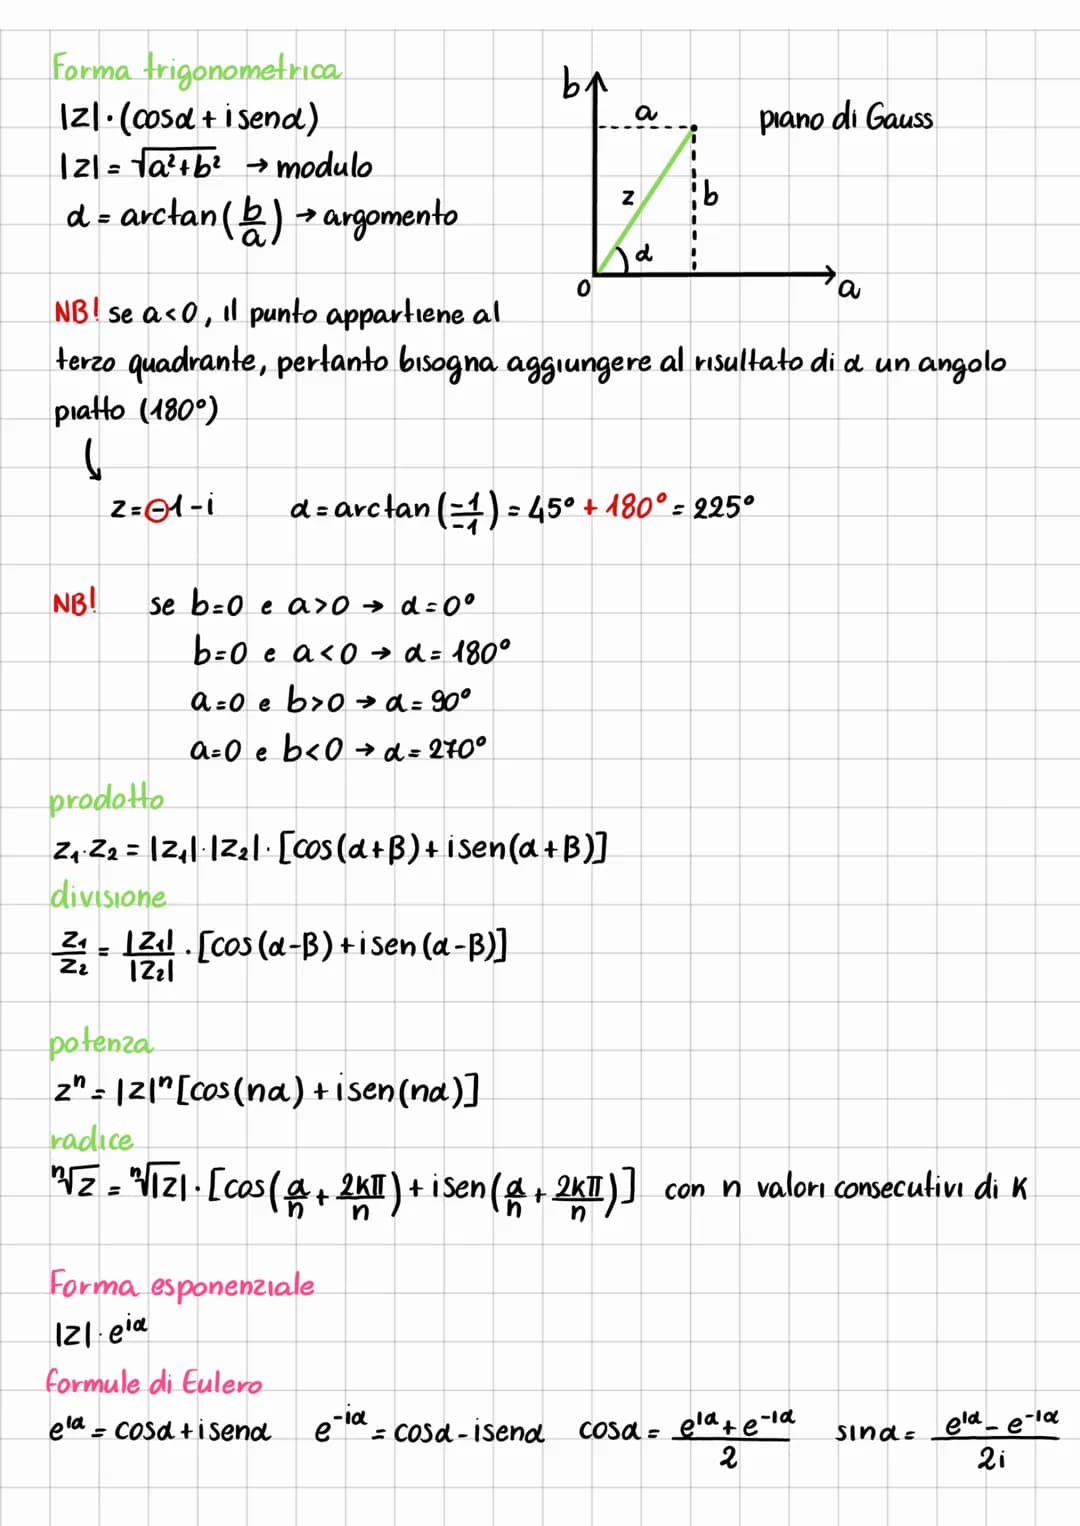 Forma trigonometrica
|z|·(cosα + i senα)
|z| = √a²+b² → modulo
α = arctan(b/a) → argomento
b
a
piano di Gauss
z
b
α
0
a
NB! se a<0, il punto appartiene al
terzo quadrante, pertanto bisogna aggiungere al risultato di α un angolo
piatto (180°)
z = -1-i α = arctan(-1/-1) = 45° + 180° = 225°
NB! se b=0 e a>0 → α=0°
b=0 e a<0 → α=180°
a=0 e b>0 → α=90°
a=0 e b<0 → α=270°
prodotto
z₁·z₂ = |z₁|·|z₂|·[cos(α+β) + i sen(α+β)]
divisione
z₁/z₂ = |z₁|/|z₂| · [cos(α-β) + i sen(α-β)]
potenza
zⁿ = |z|ⁿ[cos(nα) + i sen(nα)]
radice
ⁿ√z = ⁿ√|z| · [cos(α/n + 2kπ/n) + i sen(α/n + 2kπ/n)] con n valori consecutivi di K
Forma esponenziale
|z|·e^iα
formule di Eulero
e^iα = cosα + i senα e^-iα = cosα - i senα cosα = e^iα + e^-iα/2 sinα = e^iα - e^-iα/2i